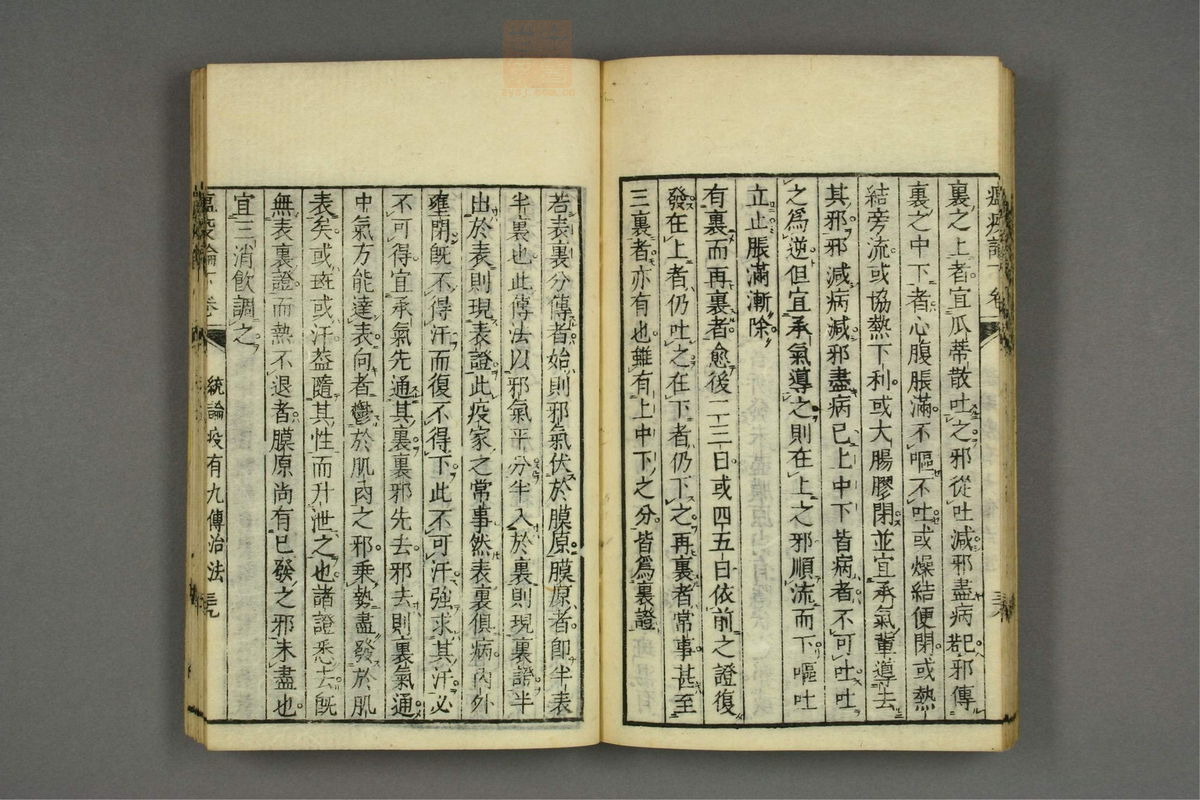 瘟疫論下卷
裏之上者宜瓜蒂散吐之邪從吐減邪盡病已邪傳
裏之中下者心腹脹滿不嘔不吐或燥結便閉或熱
結旁流或協熱下利或大腸膠閉並宜承氣輩導去
其邪邪減病減邪盡病已上中下皆病者不可吐吐
之為逆但宜承氣導之則在上之邪順流而下嘔吐
立止脹滿漸除
有裏而再裏者愈後二三日或四五日依前之證復
發在上者仍吐之在下者仍下之再裏者常事甚至
三裏者亦有也雖有上中下之分皆爲裏證
若表裏分傳者始則邪氣伏於膜原膜原者即半表
半裏也此傳法以邪氣平分半入於裏則現裏證半
出於表則現表證此疫家之常事然表裏俱病內外
壅閉旣不得汗而復不得下此不可汗強求其汗必
不可得宜承氣先通其裏裏邪先去邪去則裏氣通
中氣方能達表向者鬱於肌肉之邪乘勢盡發於肌
表矣或斑或汗葢隨其性而升泄之也諸證悉去旣
無表裏證而熱不退者膜原尚有已發之邪未盡也
宜三消飲調之
瘟疫論下卷 統論疫有九傳治法